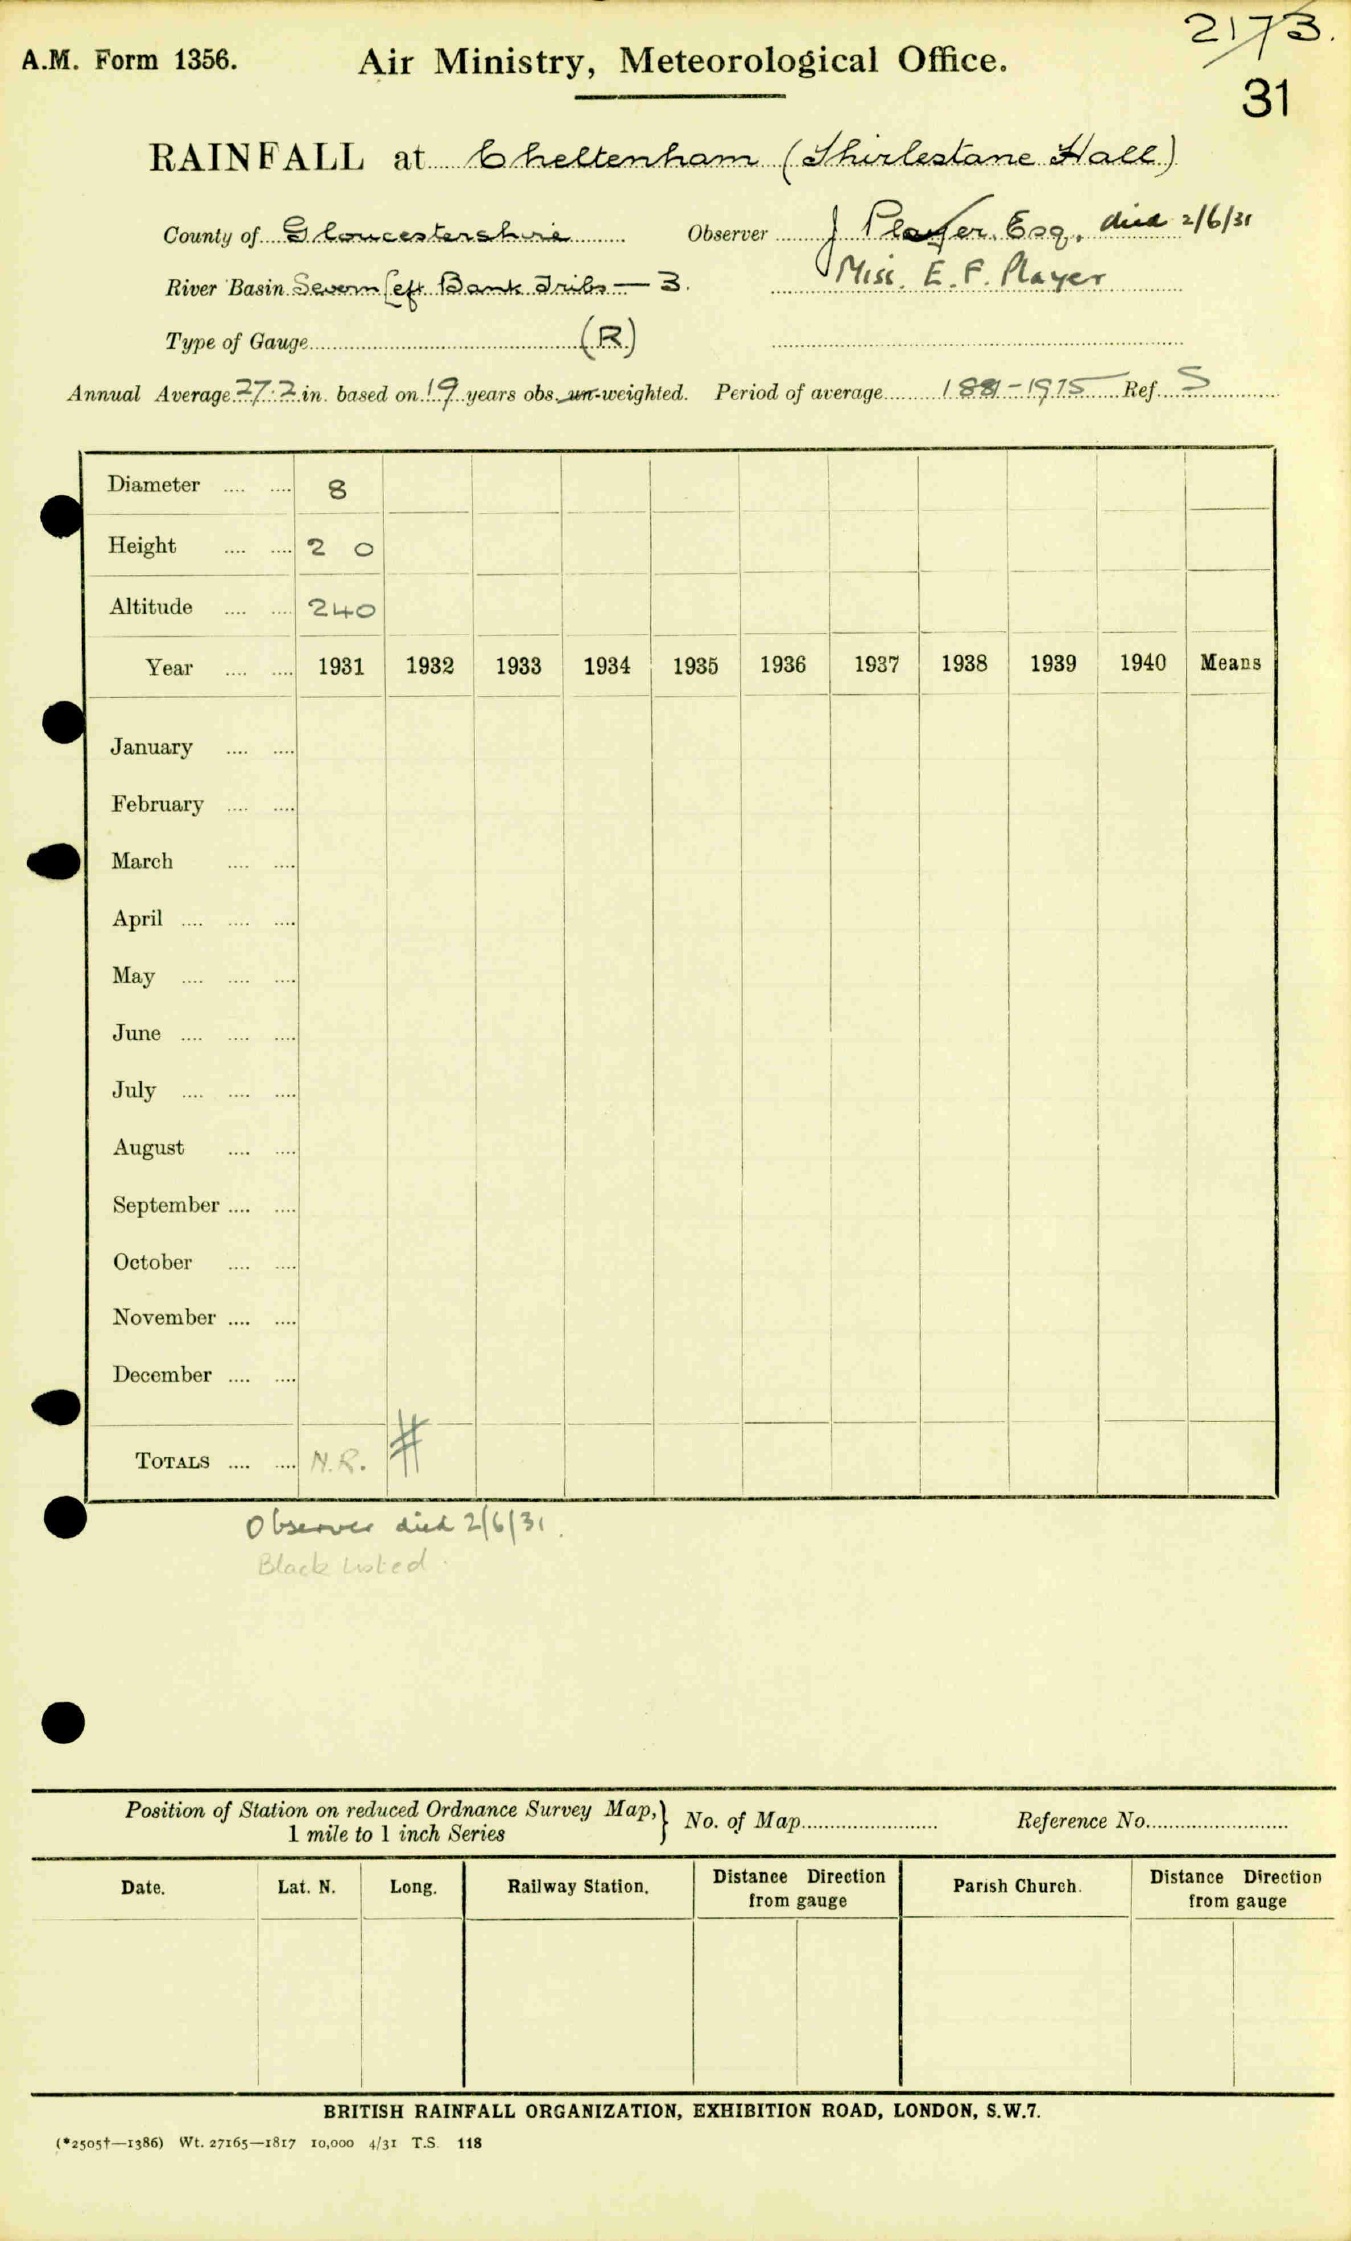 2173.
A.M. Form 1356. Air Ministry, Meteorological Office.
31
RAINFALL at Cheltenham (Thirlestane Hall)
County of Gloucestershire Observer J Player, Esq, died 2/6/31
River Basin Severn Left Bank Tribs — 3. Miss. E. F. Player
Type of Gauge (R)
Annual Average 27.2 in. based on 19 years obs. un-weighted. Period of average 1881-1915 Ref. S
Diameter .... .... 8
Height .... .... 2 0
Altitude .... .... 240
Year .... .... 1931 1932 1933 1934 1935 1936 1937 1938 1939 1940 Means
January .... ....
February .... ....
March .... ....
April .... .... ....
May .... .... ....
June .... .... ....
July .... .... ....
August .... ....
September .... ....
October .... ....
November .... ....
December .... ....
TOTALS .... .... N.R. #
Observer died 2/6/31.
Black Listed.
Position of Station on reduced Ordnance Survey Map, } No. of Map Reference No.
1 mile to 1 inch Series
Date. Lat. N. Long. Railway Station. Distance Direction from gauge Parish Church. Distance Direction from gauge
BRITISH RAINFALL ORGANIZATION, EXHIBITION ROAD, LONDON, S.W.7.
(*2505†—1386) Wt. 27165—1817 10,000 4/31 T.S. 118